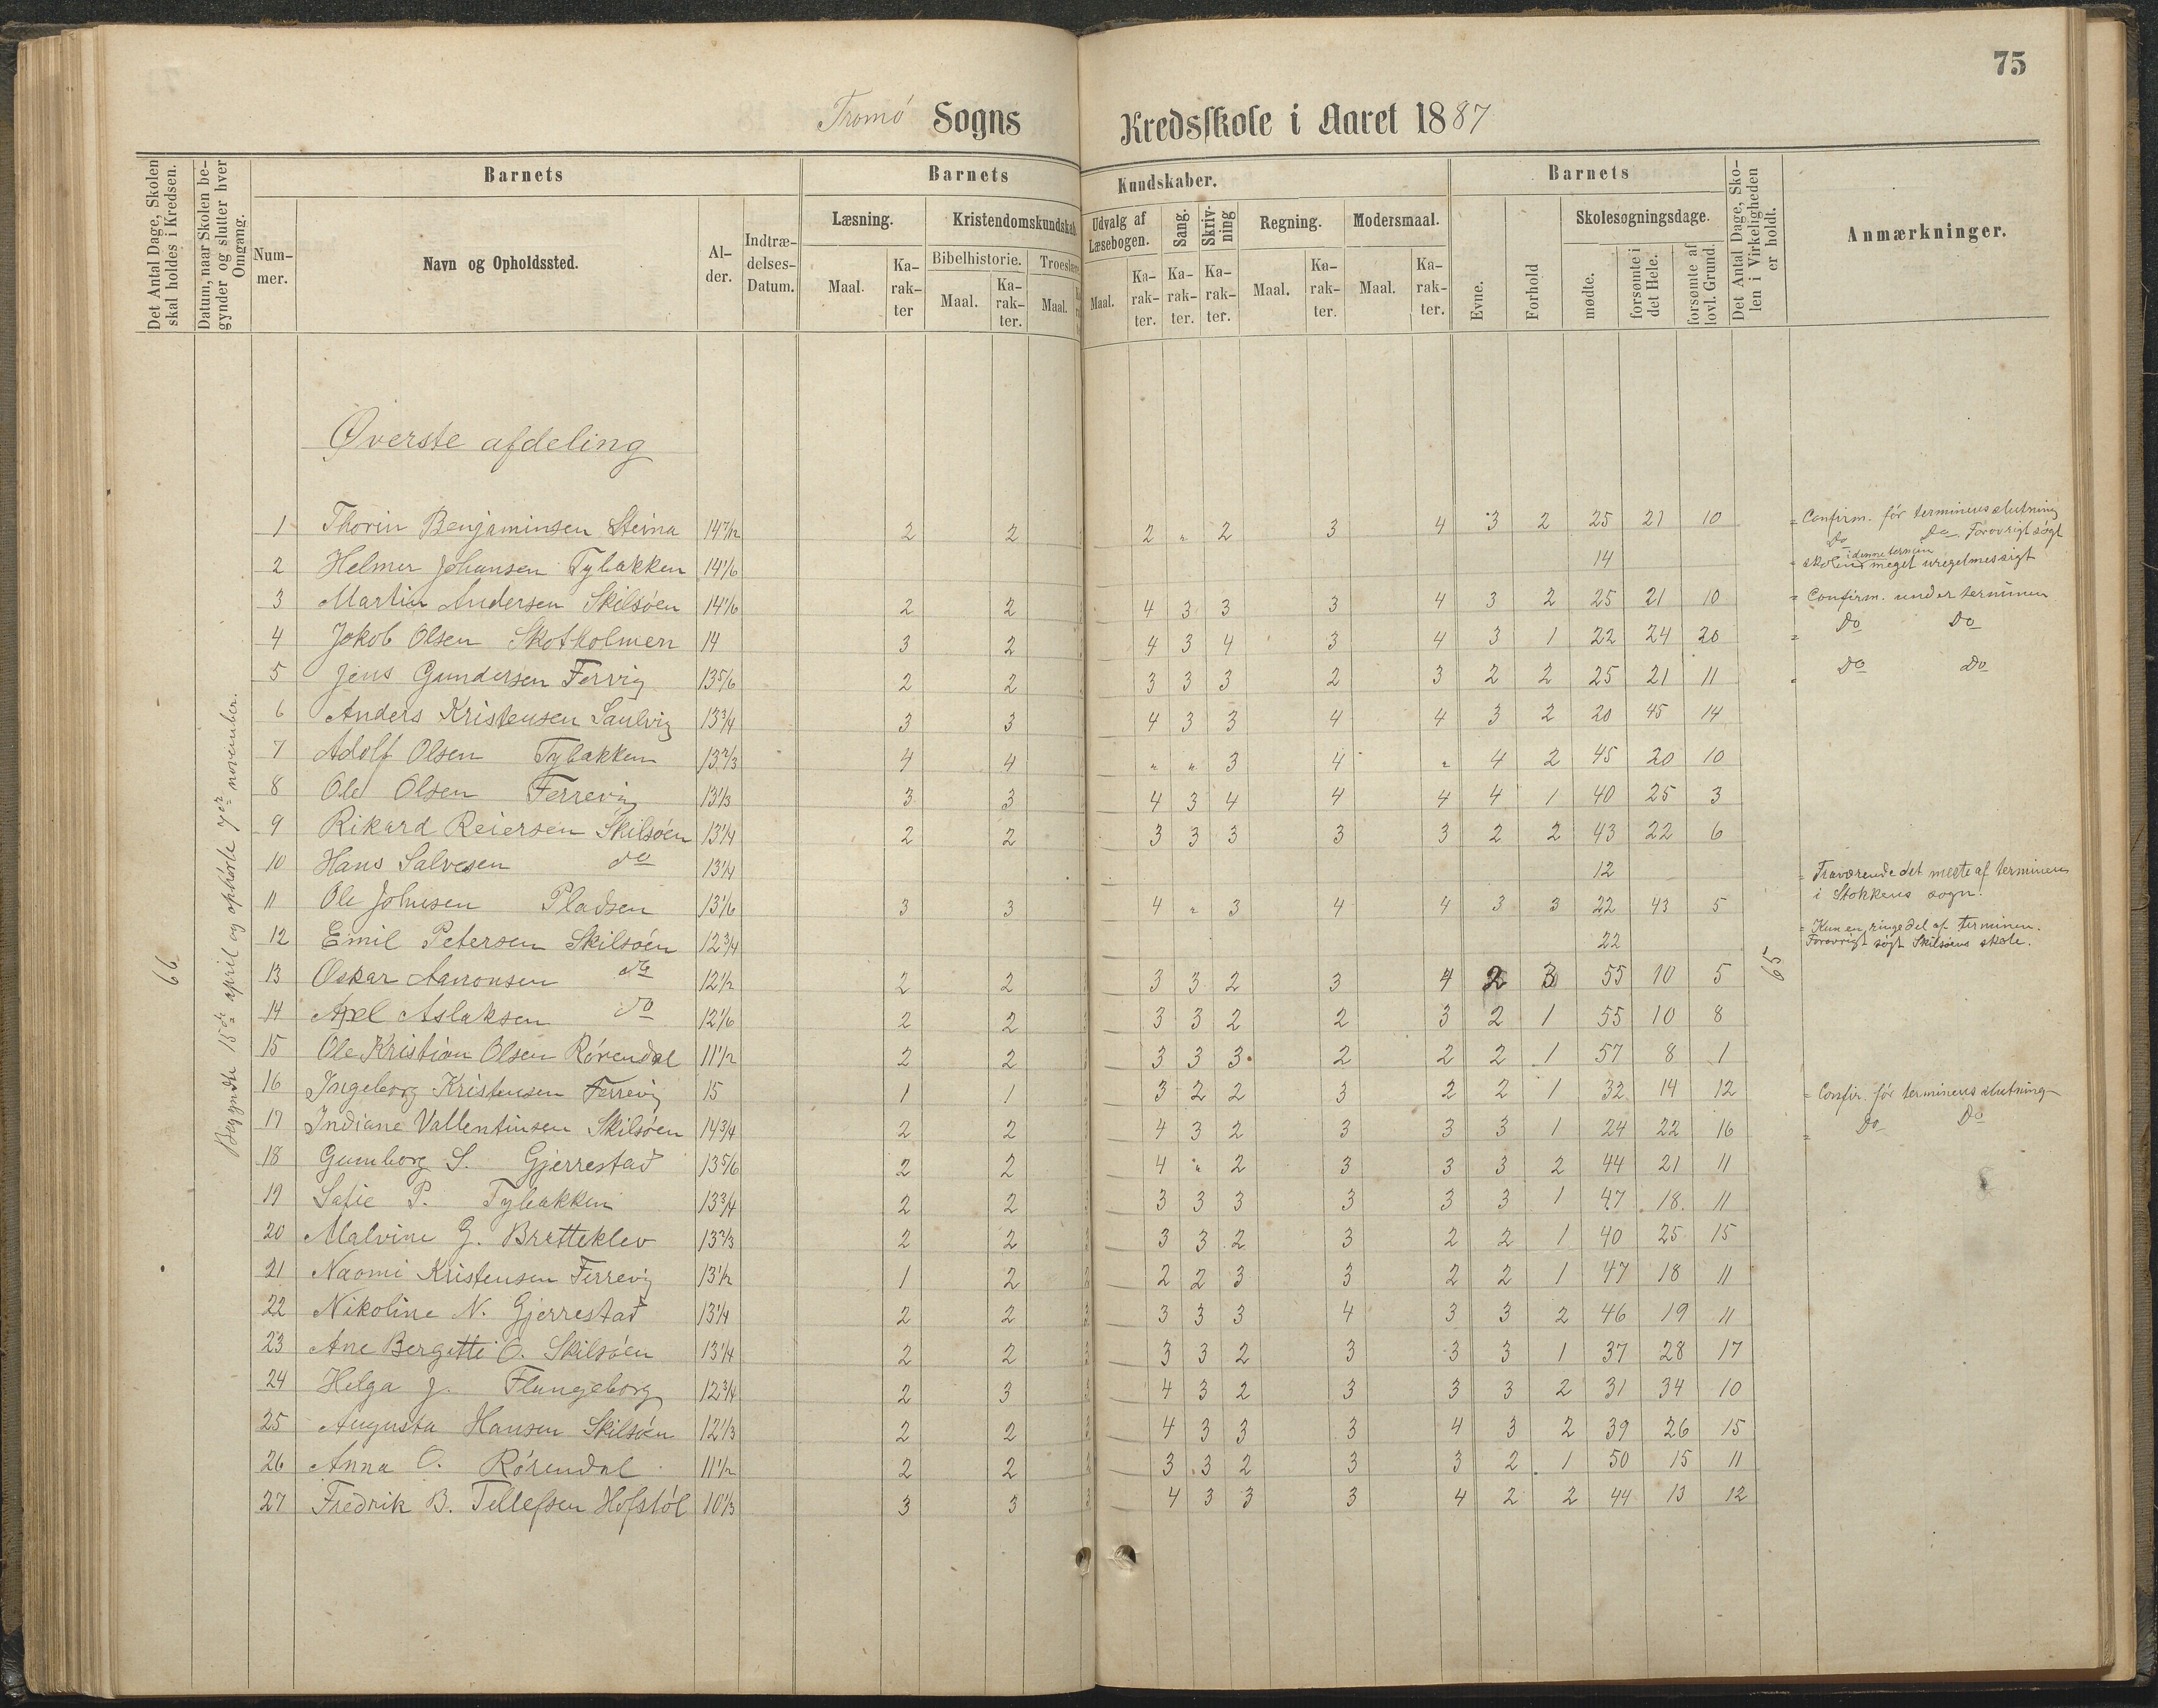 75
Tromö Sogns Kredsskole i Aaret 1887
Det Antal Dage, Skolen skal holdes i Kredsen.
Datum, naar Skolen begynder og slutter hver Omgang.
Barnets
Barnets Kundskaber.
Barnets
Det Antal Dage, Skolen i Virkeligheden er holdt.
Anmærkninger.
Nummer.
Navn og Opholdssted.
Alder.
Indtrædelses-Datum.
Læsning.
Maal.
Karakter
Kristendomskundskab
Bibelhistorie.
Maal.
Karakter.
Troeslære
Maal.
Udvalg af Læsebogen.
Maal.
Karakter.
Sang.
Karakter.
Skrivning
Karakter.
Regning.
Maal.
Karakter.
Modersmaal.
Maal.
Karakter.
Evne.
Forhold
Skolesøgningsdage.
mødte.
forsømte i det Hele.
forsømte af lovl. Grund.
66
Begyndte 15de april og ophörte 7er november.
65
Øverste afdeling
1 Thorin Benjaminsen Steina 14 7/12 2 2 2 " 2 3 4 3 2 25 21 10 = Confirm. för terminens slutning
2 Helmer Johansen Tybakken 14 1/6 14 Do Do. Forövrigt søgt
= skolen i denne termin meget uregelmessigt
3 Martin Andersen Skilsöen 14 1/6 2 2 4 3 3 3 4 3 2 25 21 10 = Confirm. under terminen
4 Jakob Olsen Skotholmen 14 3 2 4 3 4 3 4 3 1 22 24 20 = Do Do
5 Jens Gundersen Fervig 13 5/6 2 2 3 3 3 2 3 2 2 25 21 11 = Do Do
6 Anders Kristensen Saulvig 13 3/4 3 3 4 3 3 4 4 3 2 20 45 14
7 Adolf Olsen Tybakken 13 2/3 4 4 " " 3 4 " 4 2 45 20 10
8 Ole Olsen Ferrevig 13 1/3 3 3 4 3 4 4 4 4 1 40 25 3
9 Rikard Reiersen Skilsöen 13 1/4 2 2 3 3 3 3 3 2 2 43 22 6
10 Hans Salvesen do 13 1/4 12 = Fraværende det meste af terminen
i Stokkens sogn.
11 Ole Johnsen Pladsen 13 1/6 3 3 4 " 3 4 4 3 3 22 43 5
12 Emil Petersen Skilsöen 12 3/4 22 = Kun en ringe del af terminen.
Forövrigt søgt Skilsöens skole.
13 Oskar Aanonsen do 12 1/2 2 2 3 3 2 3 4 2 3 55 10 5
14 Axel Aslaksen do 12 1/6 2 2 3 3 2 2 3 2 1 55 10 8
15 Ole Kristian Olsen Rörendal 11 1/2 2 2 3 3 3 2 2 2 1 57 8 1
16 Ingeborg Kristensen Ferrevig 15 1 1 3 2 2 3 2 2 1 32 14 12 = Confir. för terminens slutning
17 Indiane Vallentinsen Skilsöen 14 3/4 2 2 4 3 2 3 3 3 1 24 22 16 = Do Do
18 Gumborg S. Gjerrestad 13 5/6 2 2 4 " 2 3 3 3 2 44 21 11
19 Sofie P. Tybakken 13 3/4 2 2 3 3 3 3 3 3 1 47 18 11
20 Malvine G. Bratteklev 13 2/3 2 2 3 3 2 3 2 2 1 40 25 15
21 Naomi Kristensen Ferrevig 13 1/2 1 2 2 2 3 3 2 2 1 47 18 11
22 Nikoline N. Gjerrestad 13 1/4 2 2 3 3 3 4 3 3 2 46 19 11
23 Ane Bergitte O. Skilsöen 13 1/4 2 2 3 3 2 3 3 3 1 37 28 17
24 Helga J. Flangeborg 12 3/4 2 3 4 3 2 3 3 3 2 31 34 10
25 Augusta Hansen Skilsöen 12 1/3 2 2 4 3 3 3 4 3 2 39 26 15
26 Anna O. Rörendal 11 1/2 2 2 3 3 2 3 3 2 1 50 15 11
27 Fredrik B. Tellefsen Hofstöl 10 1/3 3 3 4 3 3 3 4 2 2 44 13 12